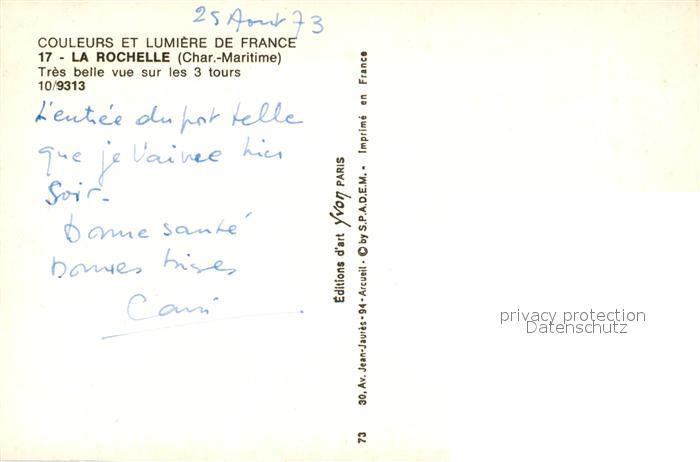 25 Aout 73
COULEURS ET LUMIÈRE DE FRANCE
17 - LA ROCHELLE (Char.-Maritime)
Très belle vue sur les 3 tours
10/9313
L'entrée du port telle
que je l'ai vue hier
Soir.
Bonne santé
Bonnes bises
Éditions d'art Yvon PARIS
30, Av. Jean-Jaurès - 94 - Arcueil - © by S.P.A.D.E.M. - Imprimé en France
73
privacy protection
Datenschutz